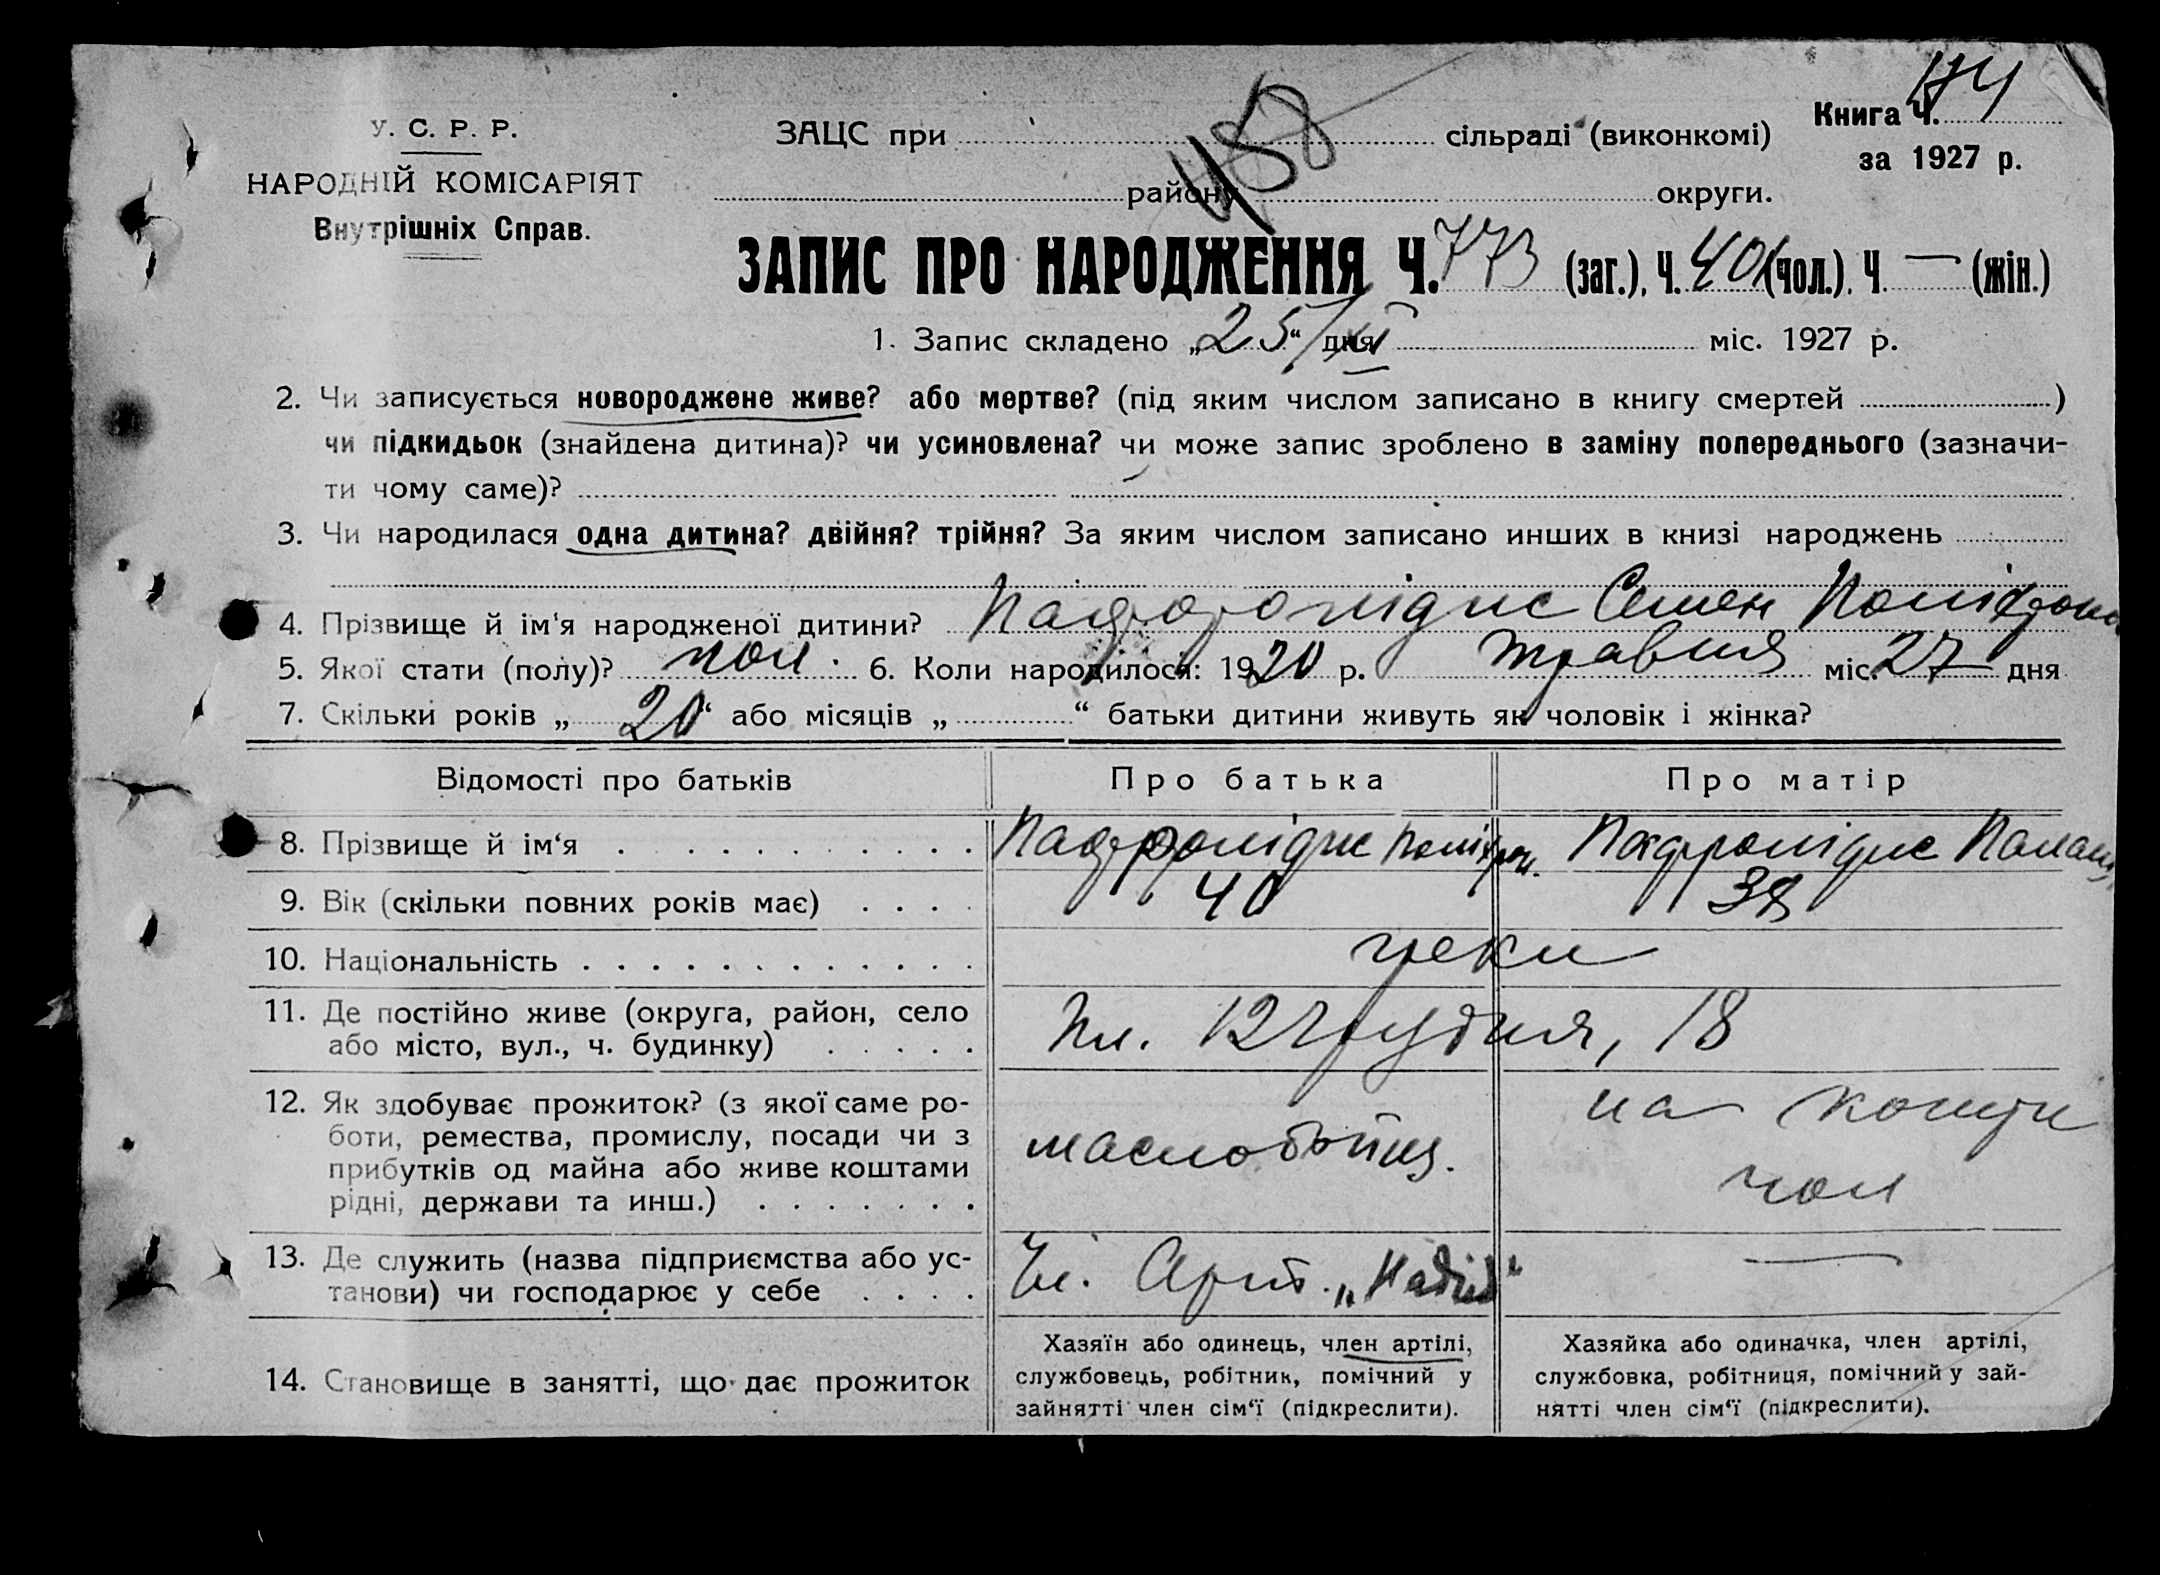 Книга Ч. 174
за 1927 р.
У. С. Р. Р.
НАРОДНІЙ КОМІСАРІЯТ
Внутрішніх Справ.
458
ЗАЦС при сільраді (виконкомі)
району округи.
ЗАПИС ПРО НАРОДЖЕННЯ Ч. 773 (заг.), Ч. 401 (чол.), Ч. — (жін.)
1. Запис складено „25“ дня міс. 1927 р.
2. Чи записується новороджене живе? або мертве? (під яким числом записано в книгу смертей )
чи підкидьок (знайдена дитина)? чи усиновлена? чи може запис зроблено в заміну попереднього (зазначи-
ти чому саме)?
3. Чи народилася одна дитина? двійня? трійня? За яким числом записано инших в книзі народжень
4. Прізвище й ім‘я народженої дитини? Семен
5. Якої стати (полу)? чол. 6. Коли народилося: 1920 р. травня міс. 27 дня
7. Скільки років „20“ або місяців „ “ батьки дитини живуть як чоловік і жінка?
Відомості про батьків Про батька Про матір
8. Прізвище й ім‘я
9. Вік (скільки повних років має) 40 38
10. Національність греки
11. Де постійно живе (округа, район, село
або місто, вул., ч. будинку) Пл. 12 грудня, 18
12. Як здобуває прожиток? (з якої саме ро-
боти, ремества, промислу, посади чи з
прибутків од майна або живе коштами
рідні, держави та инш.) маслобойщ. на кошти чол
13. Де служить (назва підприємства або ус-
танови) чи господарює у себе Чл. Арт. „Надія“ —
14. Становище в занятті, що дає прожиток
Хазяїн або одинець, член артілі,
службовець, робітник, помічний у
зайнятті член сім‘ї (підкреслити).
Хазяйка або одиначка, член артілі,
службовка, робітниця, помічний у зай-
нятті член сім‘ї (підкреслити).